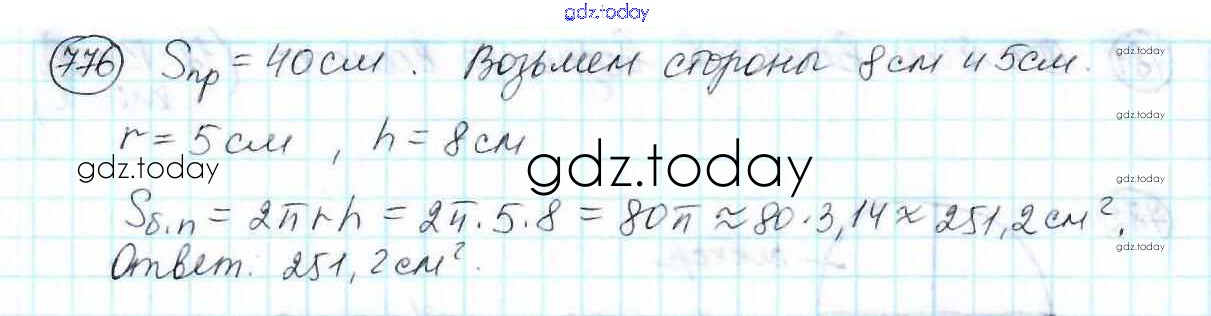 gdz.today
776 Sпр = 40см. Возьмем стороны 8см и 5см.
gdz.today
gdz.today
r = 5см, h = 8см
gdz.today
gdz.today
gdz.today
Sб.п = 2πrh = 2π·5·8 = 80π ≈ 80·3,14 ≈ 251,2см².
gdz.today
gdz.today
Ответ. 251,2см².